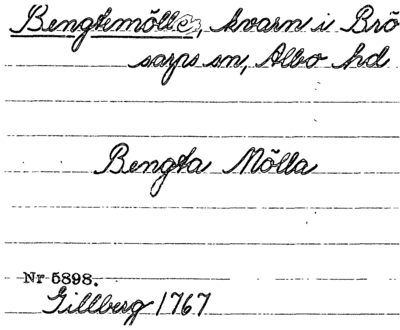 Bengtemölla, kvarn i Brö
sarps sn, Albo hd
Bengta Mölla
Nr 5898.
Gillberg 1767